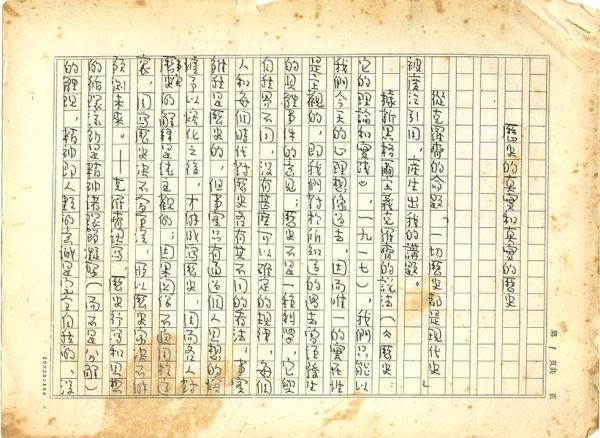 歷史的真實和真實的歷史
從克羅齊的命題「一切歷史都是現代史」
被廣泛引用，產生出我的講題。
據新黑格爾主義克羅齊的說法（《歷史：
它的理論和實踐》，一九一七），我們只能以
我們今天的心理想像過去，因而唯一的實在性
是主觀的，即我們對於所知道的過去實況發生
的具體事件的意見；歷史不是一種科學，它與
自然界不同，沒有甚麼可以確定的規律，每個
人和每個時代對歷史各有其不同的看法；事實
雖然是歷史的，但事實只有通過個人思想的
予以熔化之後，才能成寫歷史，因而各人對
歷史的解釋是純主觀的；因果關係不
家，因寫歷史決不會重演，所以歷史家決不能
預測未來。——克羅齊認為，歷史
的循環
的體現，精神即人類的意識是完全自由的，沒
第 1 頁共 頁